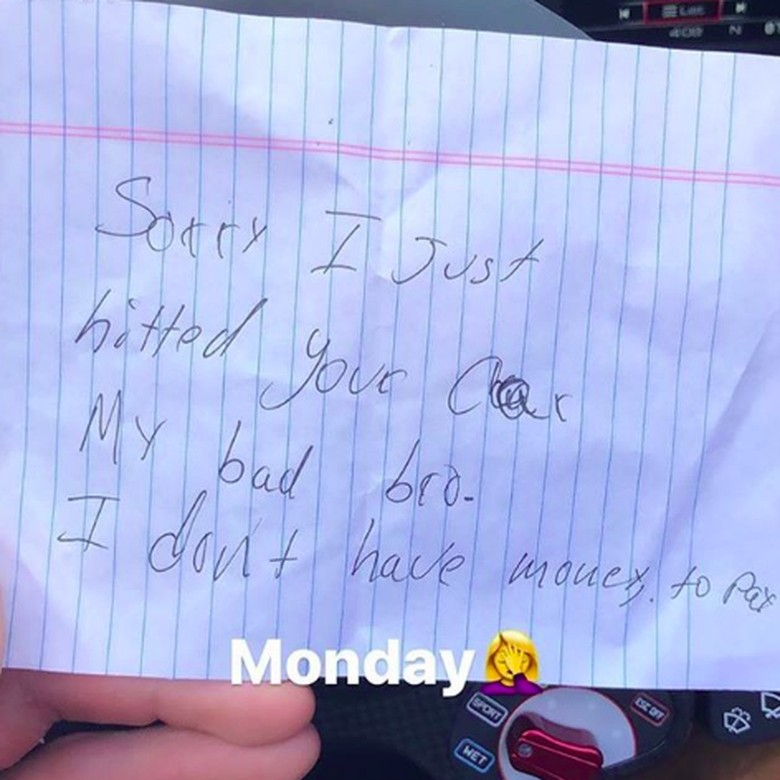 408 N
Sorry I Just
hitted your Car
My bad bro.
I don't have money. to Pay
Monday🤦‍♀️
SPORT
ESC OFF
WET